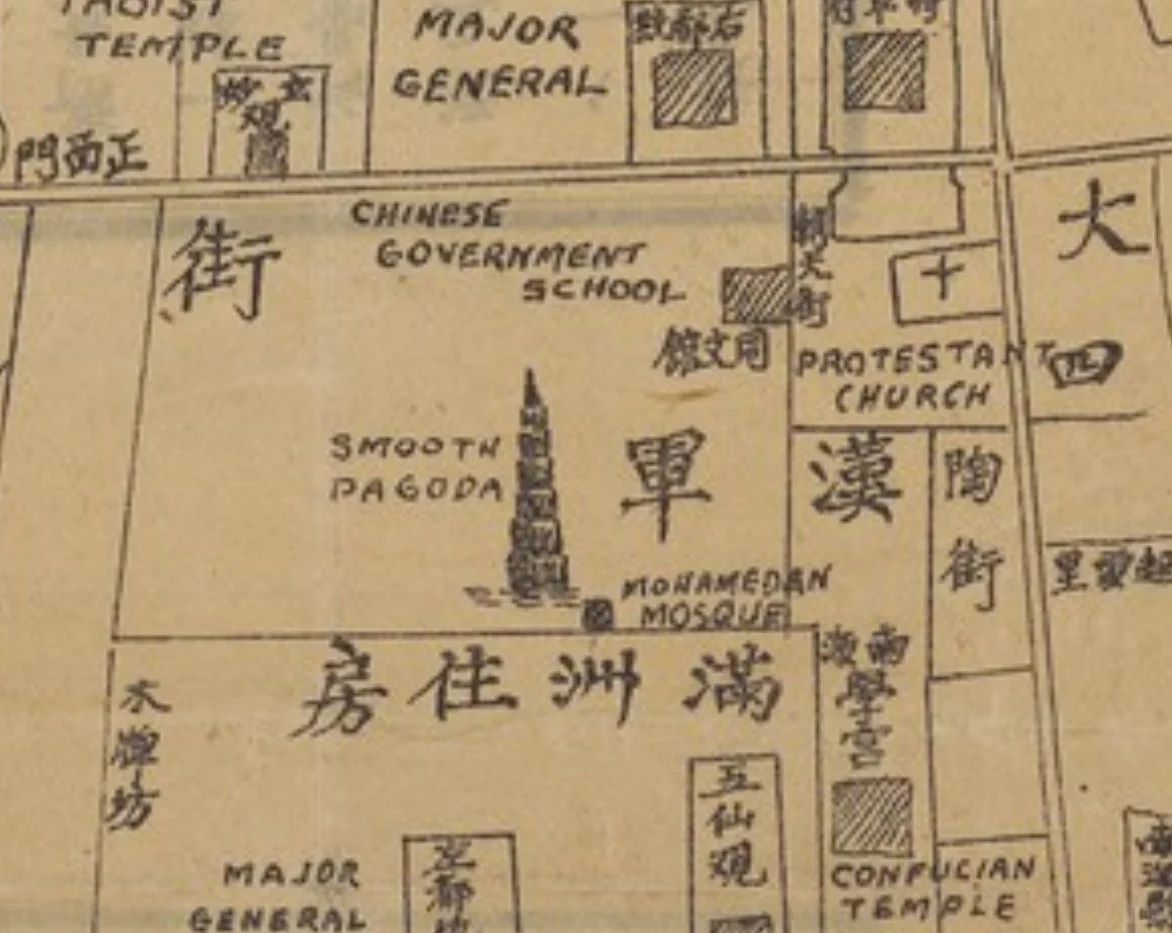 TAOIST
TEMPLE
玄妙
观
MAJOR
GENERAL
右都
門面西正
CHINESE
GOVERNMENT
SCHOOL
同文館
街
朝天街
十
PROTESTANT
CHURCH
大
四
SMOOTH
PAGODA
軍
漢
陶
街
MOHAMEDAN
MOSQUE
里
房住洲滿
南海
學宮
木牌坊
五仙观
CONFUCIAN
TEMPLE
MAJOR
GENERAL
左都